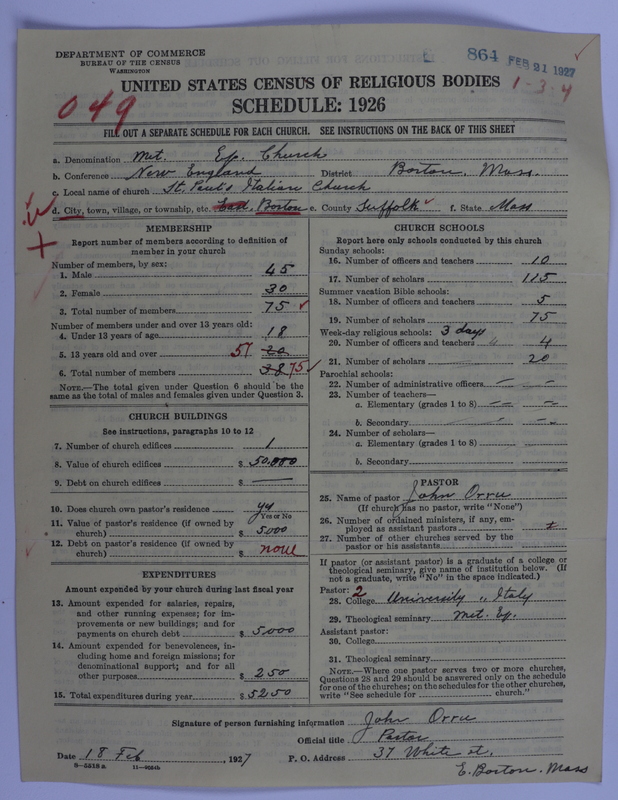 DEPARTMENT OF COMMERCE
BUREAU OF THE CENSUS
WASHINGTON
864 FEB 21 1927
1-3-4
UNITED STATES CENSUS OF RELIGIOUS BODIES
SCHEDULE: 1926
049
FILL OUT A SEPARATE SCHEDULE FOR EACH CHURCH. SEE INSTRUCTIONS ON THE BACK OF THIS SHEET
a. Denomination Met. Ep. Church
b. Conference New England District Boston. Mass.
c. Local name of church St. Paul's Italian Church
d. City, town, village, or township, etc. East Boston e. County Suffolk f. State Mass
MEMBERSHIP
Report number of members according to definition of
member in your church
Number of members, by sex:
1. Male 45
2. Female 30
3. Total number of members 75
Number of members under and over 13 years old:
4. Under 13 years of age 18
5. 13 years old and over 57 20
6. Total number of members 38 75
NOTE.—The total given under Question 6 should be the
same as the total of males and females given under Question 3.
CHURCH BUILDINGS
See instructions, paragraphs 10 to 12
7. Number of church edifices 1
8. Value of church edifices $ 50.000
9. Debt on church edifices $ —
10. Does church own pastor's residence yes
Yes or No
11. Value of pastor's residence (if owned by
church) $ 5000
12. Debt on pastor's residence (if owned by
church) $ none
EXPENDITURES
Amount expended by your church during last fiscal year
13. Amount expended for salaries, repairs,
and other running expenses; for im-
provements or new buildings; and for
payments on church debt $ 5,000
14. Amount expended for benevolences, in-
cluding home and foreign missions; for
denominational support; and for all
other purposes $ 250
15. Total expenditures during year $ 5250
CHURCH SCHOOLS
Report here only schools conducted by this church
Sunday schools:
16. Number of officers and teachers 10
17. Number of scholars 115
Summer vacation Bible schools:
18. Number of officers and teachers 5
19. Number of scholars 75
Week-day religious schools: 3 days
20. Number of officers and teachers 4
21. Number of scholars 20
Parochial schools:
22. Number of administrative officers — —
23. Number of teachers—
a. Elementary (grades 1 to 8) — —
b. Secondary — —
24. Number of scholars—
a. Elementary (grades 1 to 8)
b. Secondary
PASTOR
25. Name of pastor John Orru
(If church has no pastor, write "None")
26. Number of ordained ministers, if any, em-
ployed as assistant pastors
27. Number of other churches served by the
pastor or his assistants
If pastor (or assistant pastor) is a graduate of a college or
theological seminary, give name of institution below. (If
not a graduate, write "No" in the space indicated.)
Pastor: 2
28. College University Italy
29. Theological seminary Met. Ep.
Assistant pastor:
30. College
31. Theological seminary
NOTE.—Where one pastor serves two or more churches,
Questions 28 and 29 should be answered only on the schedule
for one of the churches; on the schedules for the other churches,
write "See schedule for church."
Signature of person furnishing information John Orru
Official title Pastor
Date 18 Feb, 1927 P. O. Address 37 White st.
E. Boston. Mass
8-5518 a 11-9064b